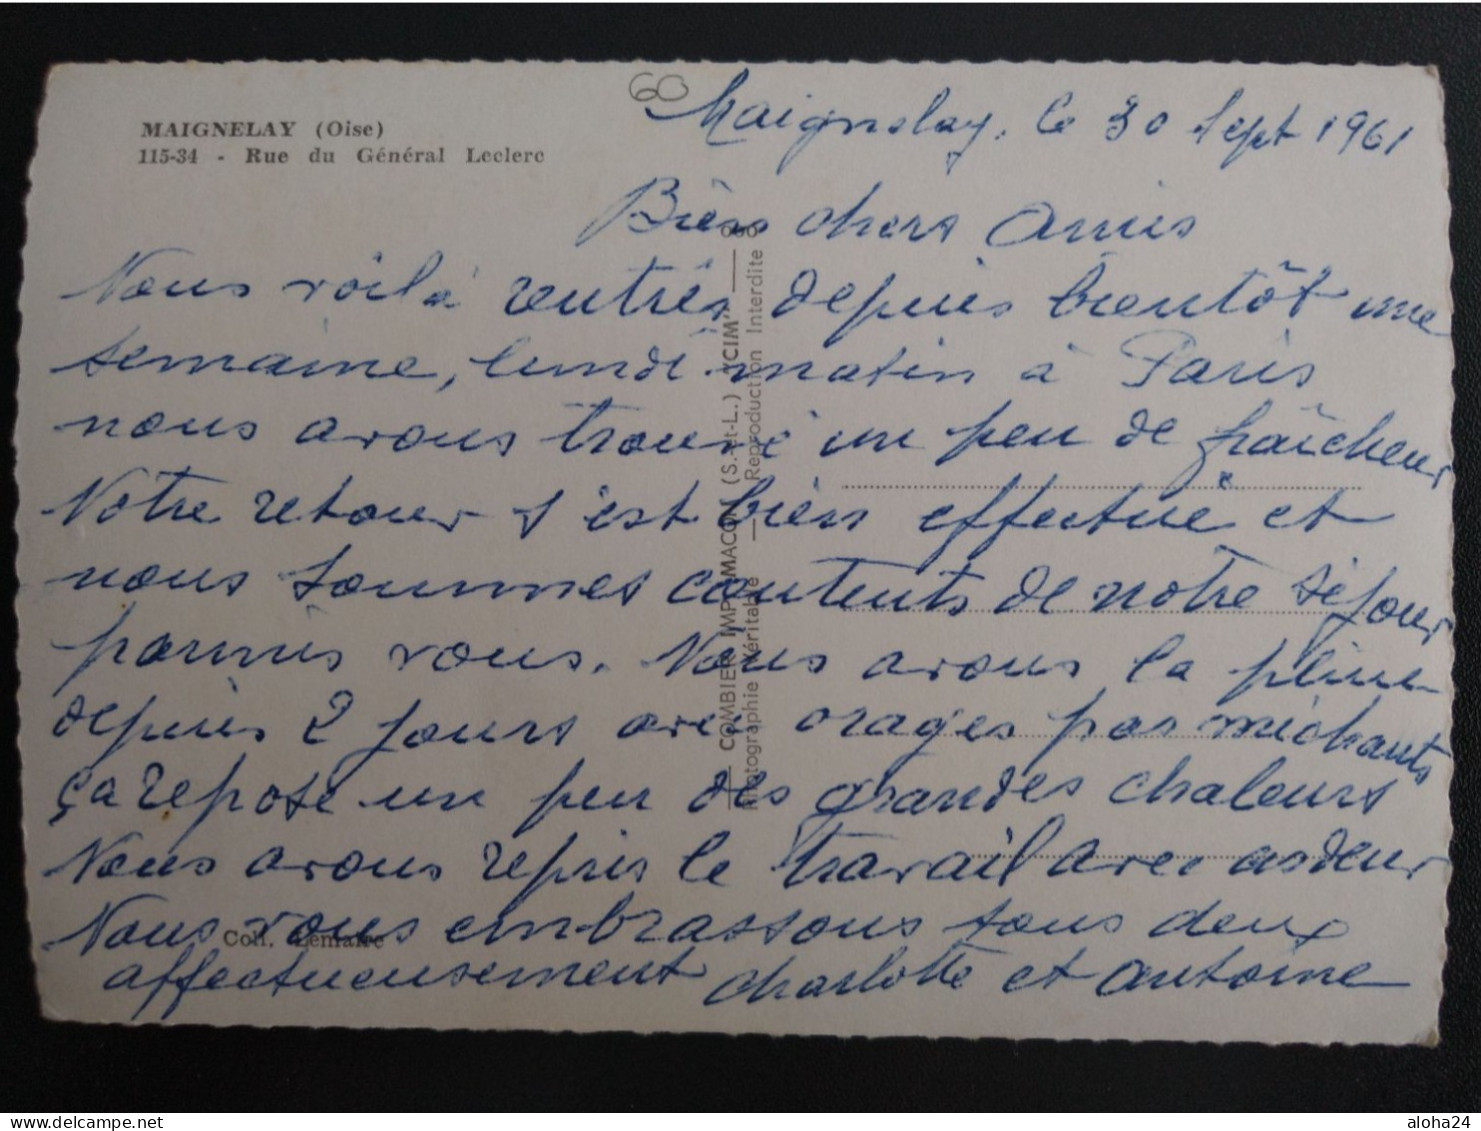 60
MAIGNELAY (Oise)
115-34 - Rue du Général Leclerc
Maignelay, le 30 Sept 1961
Bièns chers Amis
Nous voilà rentrés depuis bientôt une
semaine, lundi matin à Paris
nous avons trouvé un peu de fraîcheur
Notre retour s'est bièn effectué et
nous sommes contents de notre séjour
parmis vous. Nous avons la pluie
depuis 2 jours avec orages pas méchants
ça repose un peu des grandes chaleurs
Nous avons repris le travail avec ardeur
Nous vous embrassons tous deux
affectueusement Charlotte et Antoine
Coll. Lemaire
COMBIER IMP. MACON (S.-et-L.) "CIM"
Photographie Véritable — Reproduction Interdite
delcampe.net
aloha24